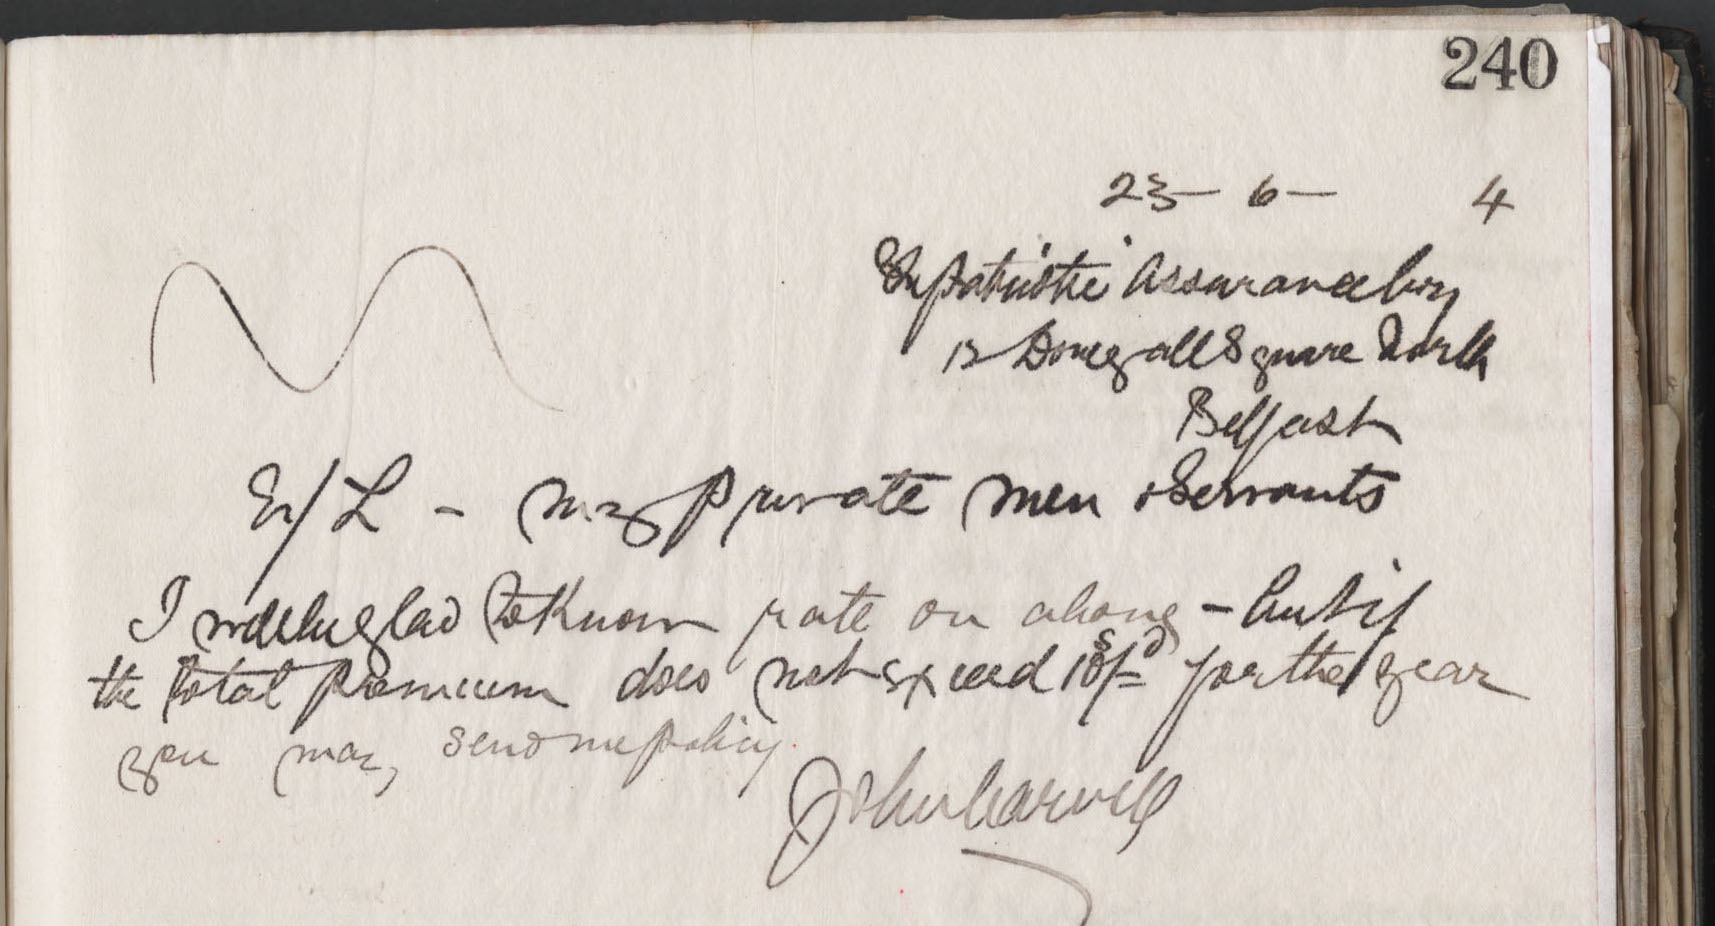 240
23 - 6 - 4
The Patriotic Assurance Coy
13 Donegall Square North
Belfast
E/L - my private men & Servants
I will be glad to know rate on above - but if
the total premium does not exceed 10s/=d for the year
you may send me policy.
John Carvill